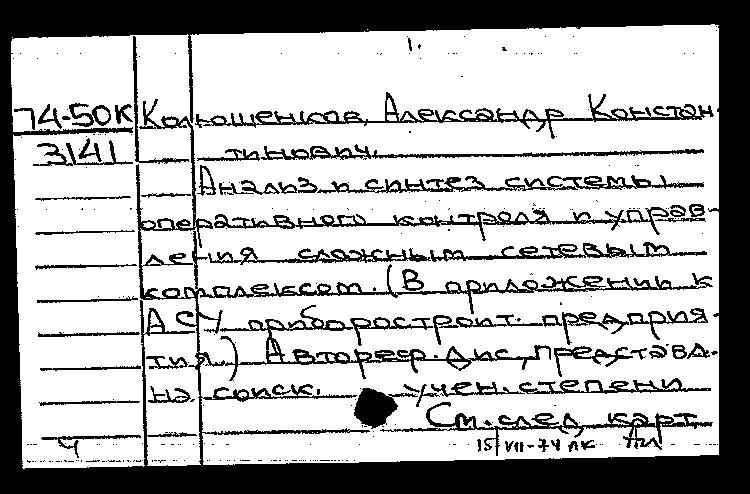 1.
74-50К Колющенков, Александр Констан-
3141 тинович.
Анализ и синтез системы
оперативного контроля и управ-
ления сложным сетевым
комплексом. (В приложении к
АСУ приборостроит. предприя-
тия.) Автореф. дис., представл.
на соиск. учен. степени
См. след. карт.
Ч 15/VII-74 ЛК